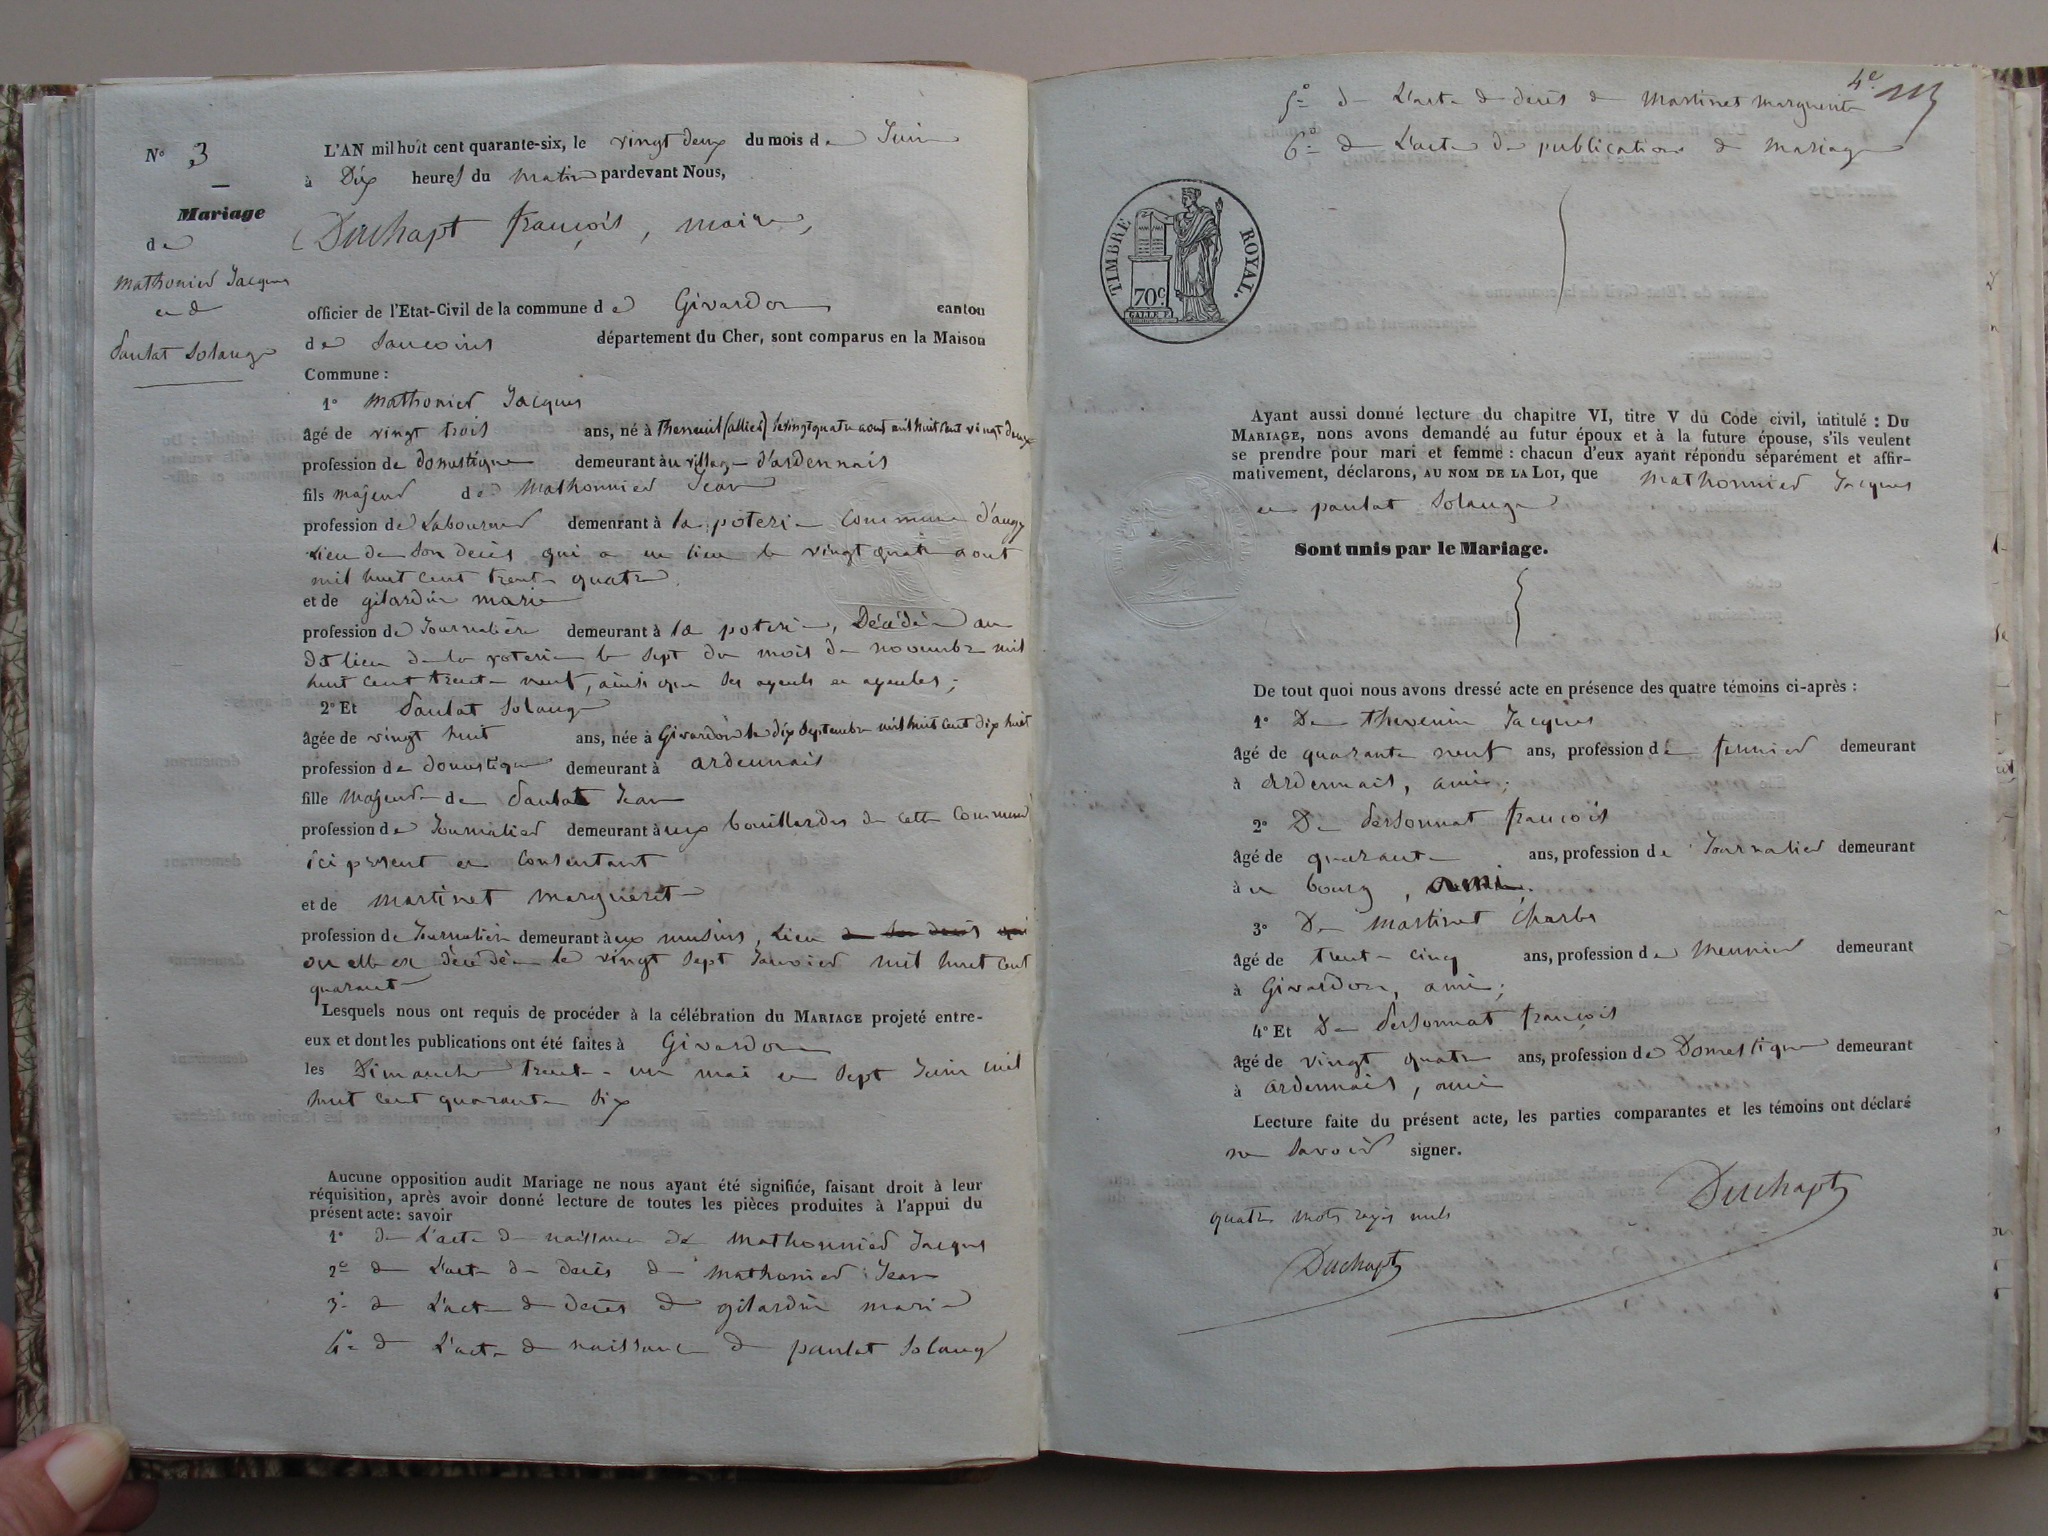 N° 3
Mariage
de
Mathonier Jacques
et de
Paulat Solange
L'AN mil huit cent quarante-six, le vingt deux du mois de Juin
à Dix heures du matin pardevant Nous,
Duchapt françois, maire,
officier de l'Etat-Civil de la commune de Givardon canton
de Sancoins département du Cher, sont comparus en la Maison
Commune :
1° Mathonier Jacques
âgé de vingt trois ans, né à Theneuil (allier) le vingt quatre aout mil huit cent vingt deux
profession de domestique demeurant au village d'ardennais
fils majeur de Mathonnier Jean
profession de Laboureur demeurant à la poterie commune d'augy
Lieu de son decès qui a eu lieu le vingt quatre aout
mil huit cent trente quatre.
et de gilardin marie
profession de Journalière demeurant à la poterie, Décédée au
dit lieu de la poterie le sept du mois de novembre mil
huit cent trente neuf, ainsi que ses ayeuls et ayeules ;
2° Et Paulat Solange
âgée de vingt huit ans, née à Givardon le dix Septembre mil huit cent dix huit
profession de domestique demeurant à ardennais
fille Majeure de Paulat Jean
profession de Journalier demeurant aux bouillardes de cette Commune
ici présent et Consentant
et de martinet marguerite
profession de Journalière demeurant aux musins, Lieu de son decès qui
ou elle est décédée le vingt sept Janvier mil huit cent
quarante
Lesquels nous ont requis de procéder à la célébration du MARIAGE projeté entre-
eux et dont les publications ont été faites à Givardon
les Dimanche trente-un mai et sept Juin mil
huit cent quarante six
Aucune opposition audit Mariage ne nous ayant été signifiée, faisant droit à leur
réquisition, après avoir donné lecture de toutes les pièces produites à l'appui du
présent acte : savoir
1° de L'acte de naissance de Mathonnier Jacques
2° de L'acte de decès de Mathonier Jean
3° de L'acte de decès de gilardin marie
4° de L'acte de naissance de paulat Solange
4e
5° de L'acte de decès de Martinet marguerite
6° de L'acte de publication de mariage
TIMBRE ROYAL.
70c
Ayant aussi donné lecture du chapitre VI, titre V du Code civil, intitulé : DU
MARIAGE, nous avons demandé au futur époux et à la future épouse, s'ils veulent
se prendre pour mari et femme : chacun d'eux ayant répondu séparément et affir-
mativement, déclarons, AU NOM DE LA LOI, que Mathonnier Jacques
et paulat Solange
Sont unis par le Mariage.
De tout quoi nous avons dressé acte en présence des quatre témoins ci-après :
1° De thevenin Jacques
âgé de quarante neuf ans, profession de fermier demeurant
à ardennais, ami ;
2° De Personnat françois
âgé de quarante ans, profession de Journalier demeurant
au bourg, ami.
3° De Martinet Charles
âgé de trente cinq ans, profession de Meunier demeurant
à Givardon, ami ;
4° Et De Personnat françois
âgé de vingt quatre ans, profession de Domestique demeurant
à ardennais, ami
Lecture faite du présent acte, les parties comparantes et les témoins ont déclaré
ne Savoir signer.
Duchapt
quatre mots rayés nuls
Duchapt